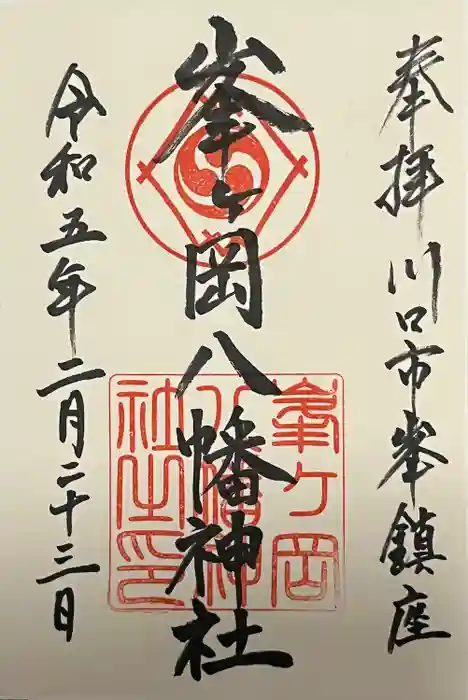 奉拝 川口市峯鎮座
峯ヶ岡八幡神社
令和五年二月二十三日
峯ヶ岡
八幡神
社之印